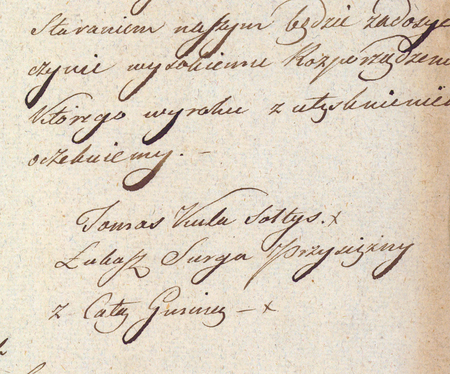 Staraniem naszym będzie zadosyć
czynić wysokiemu Rozporządzeni
Którego wyroku z utęsknieniem
oczekuiemy. —
Tomas Kula Sołtys. x
Łukasz Surga Przysiężny
z Całą Gminą — x